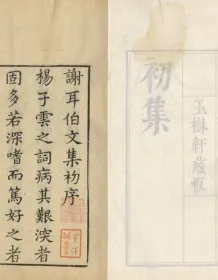 玉樹軒藏板
初集
謝耳伯文集初序
楊子雲之詞病其艱澁者
固多若深嗜而篤好之者